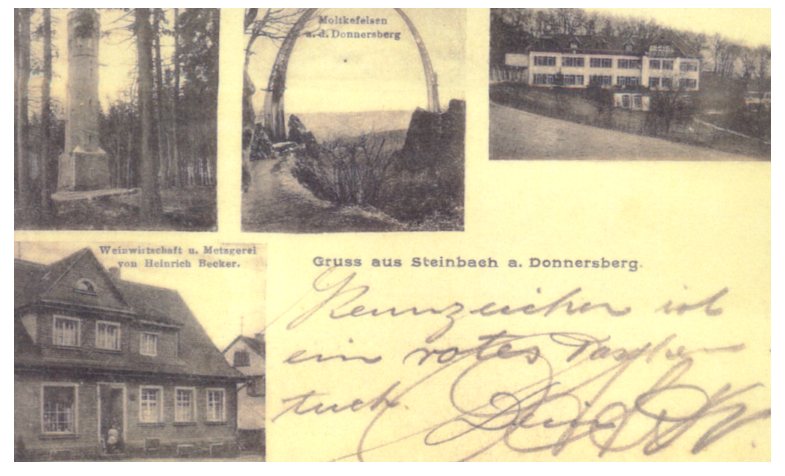 Moltkefelsen
a. d. Donnersberg
Weinwirtschaft u. Metzgerei
von Heinrich Becker.
Gruss aus Steinbach a. Donnersberg.
Kennzeichen ist
ein rotes Taschen
tuch. Dein